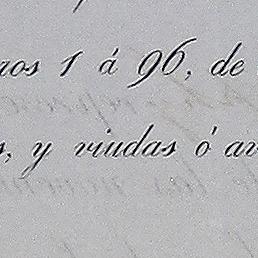 ros 1 á 96, de
s, y viudas ó av